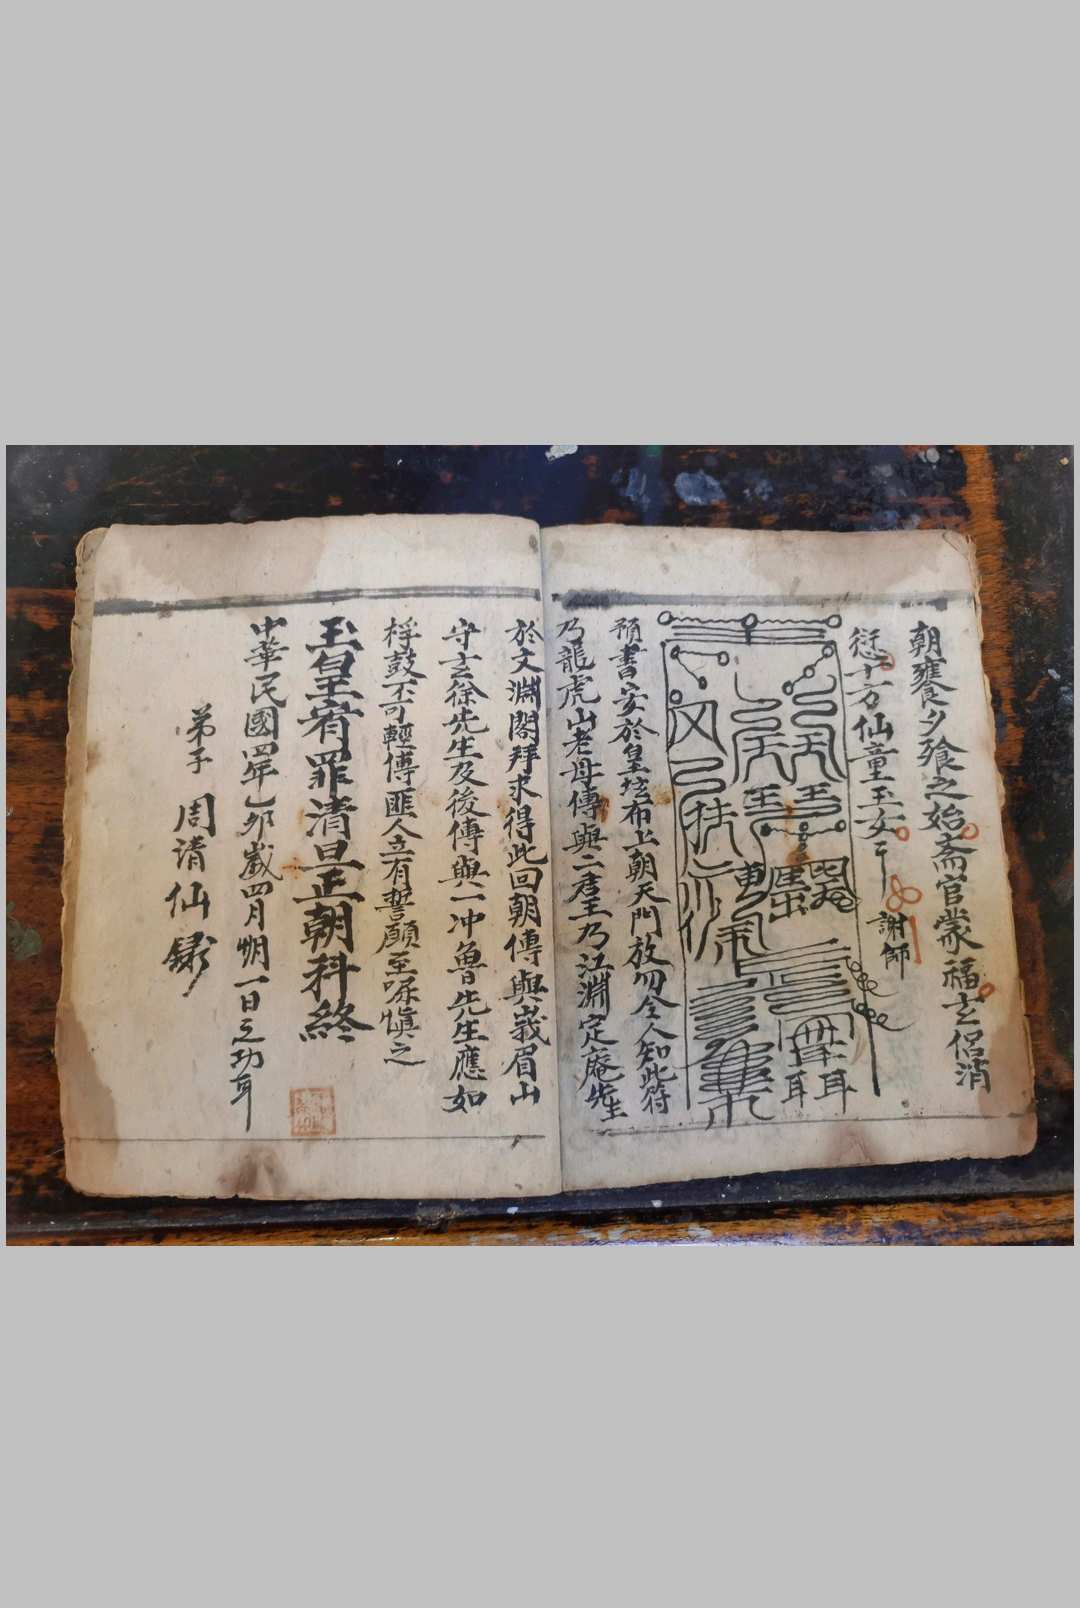 朝饔夕飱之始斋官蒙福玄侶消
愆十方仙童玉女
謝師
預書安於皇坛布上朝天門放勿令人知此符
乃龍虎山老母傳與二君王乃江淵定庵先生
於文淵閣拜求得此回朝傳與峩眉山
守玄徐先生及後傳與一冲魯先生應如
桴鼓不可輕傳匪人立有誓願至嘱慎之
玉皇宥罪清旦正朝科終
中華民國四年乙卯歲四月朔一日之功耳
弟子 周清仙録